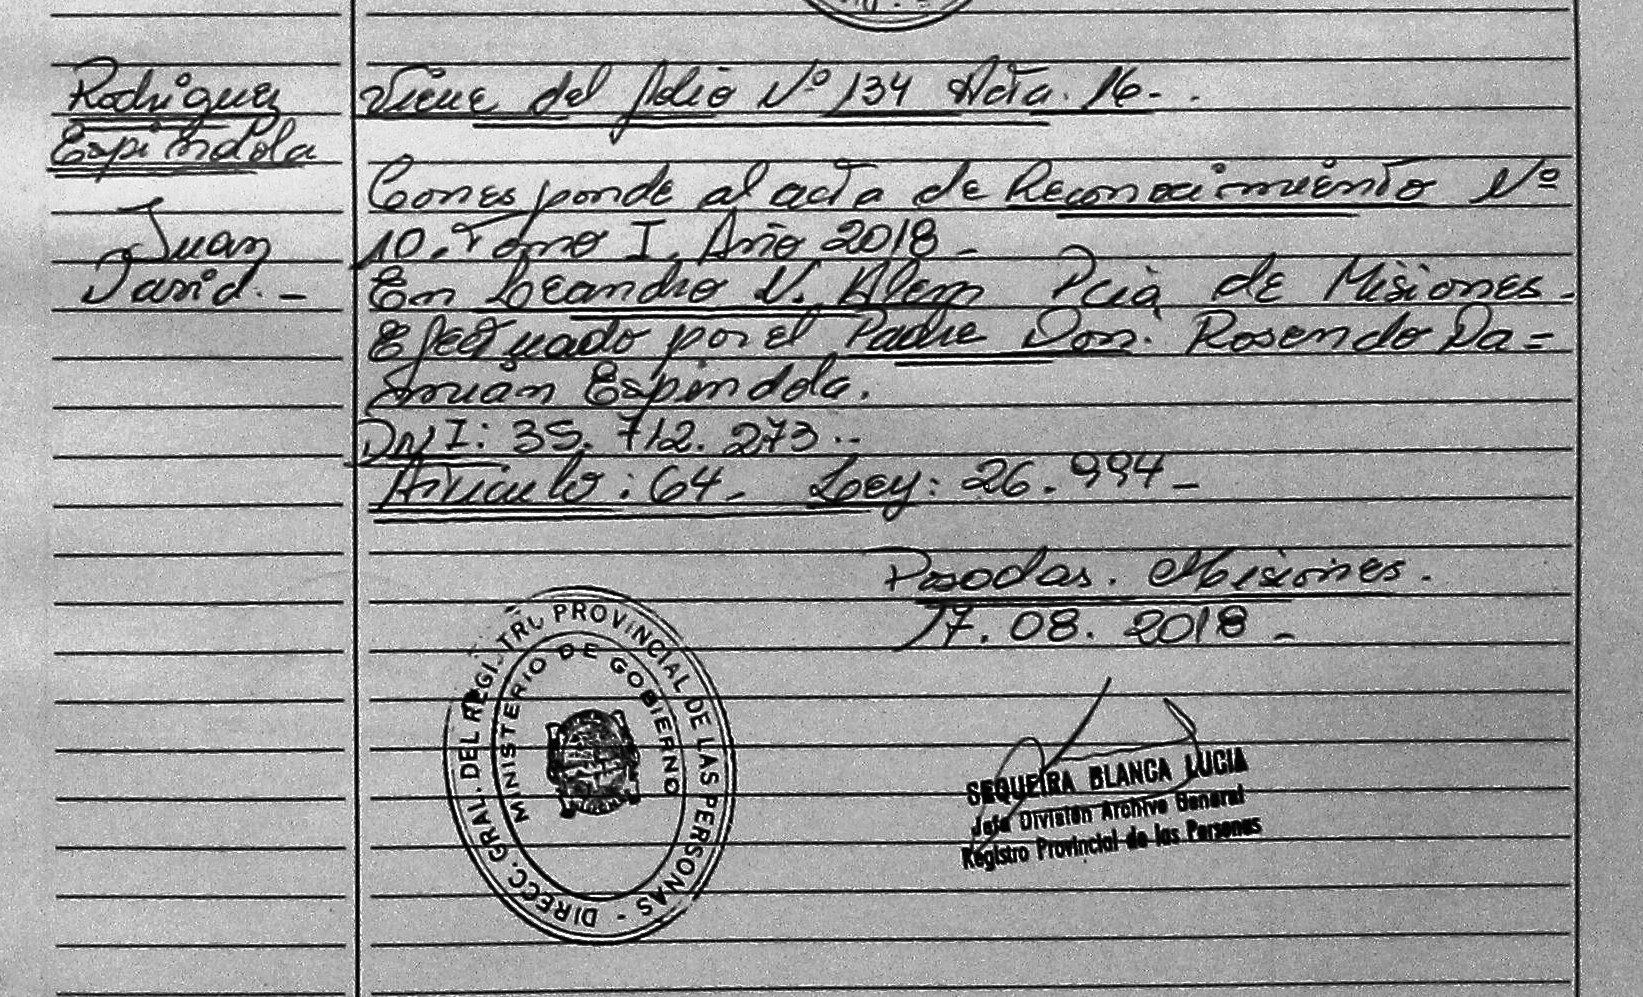 Rodriguez
Espindola
Juan
David. -
Viene del folio Nº 134 Acta. 16 - .
Corresponde al acta de Reconocimiento Nº
10. Tomo I. Año 2018 -
En Leandro N. Alem Pcia de Misiones -
Efectuado por el Padre Don. Rosendo Da=
mián Espindola.
DNI: 35. 712. 273 --
Articulo: 64 - Ley: 26. 994 -
Posadas. Misiones.
17. 08. 2018 -
DIRECC. GRAL. DEL REGISTRO PROVINCIAL DE LAS PERSONAS -
MINISTERIO DE GOBIERNO
SEQUEIRA BLANCA LUCIA
Jefa División Archivo General
Registro Provincial de las Personas